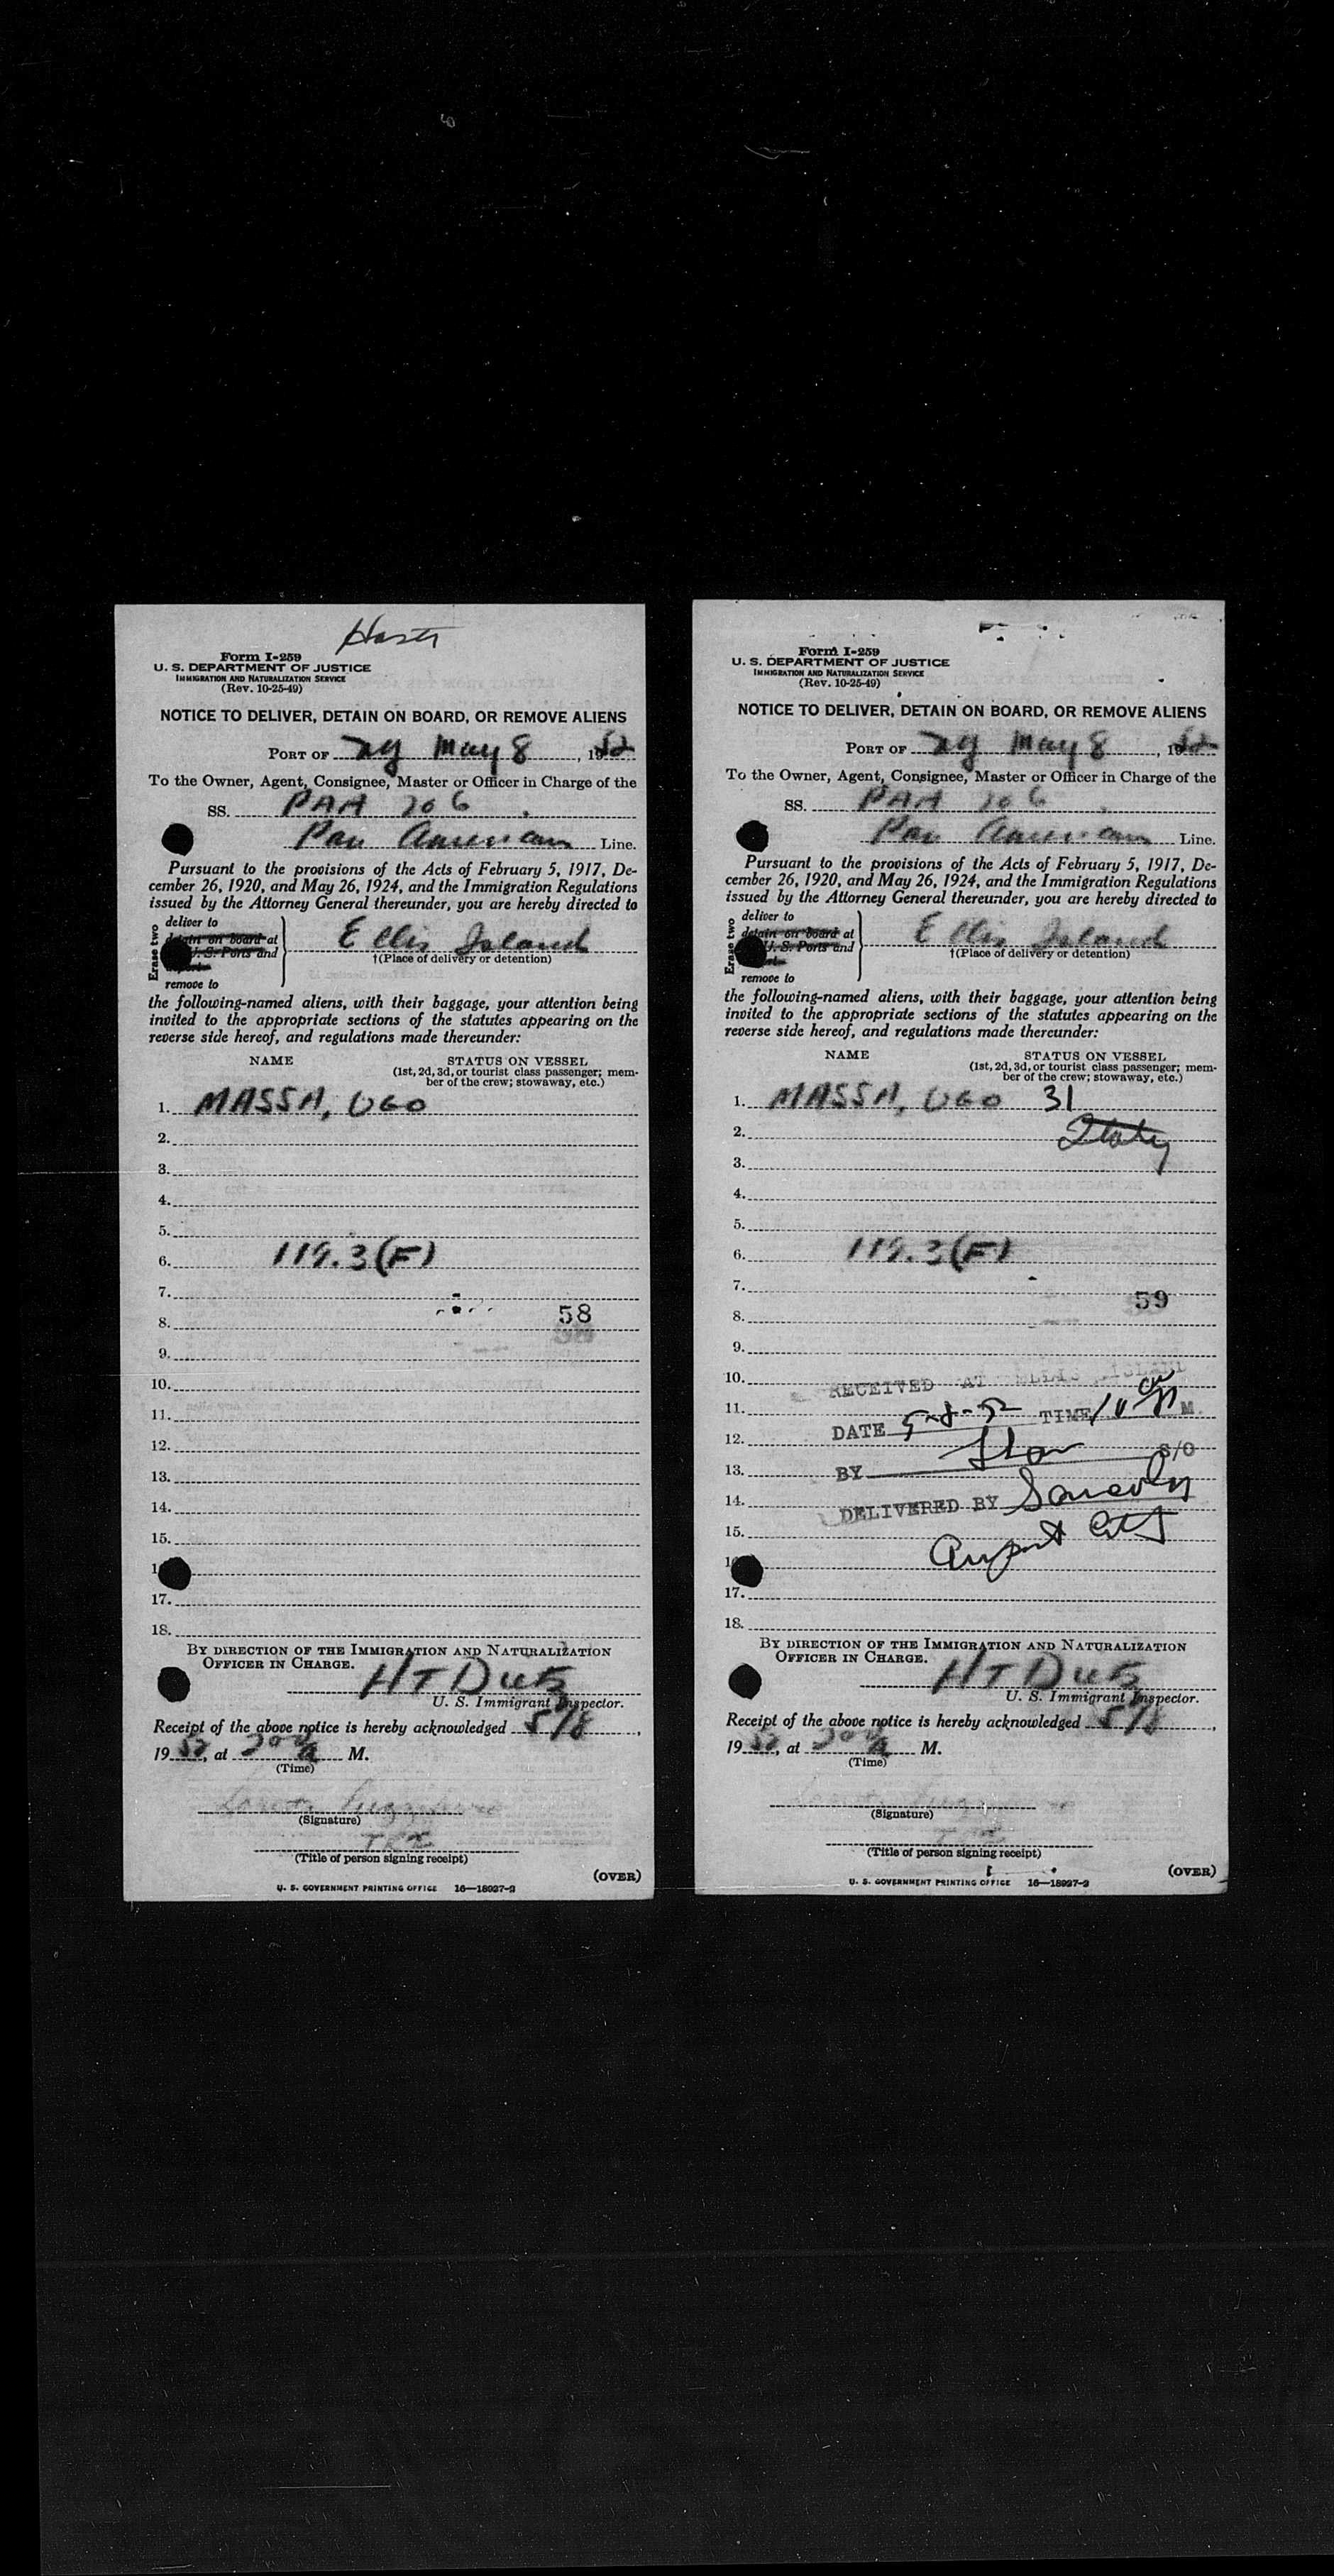 Hasti
Form I-259
U. S. DEPARTMENT OF JUSTICE
IMMIGRATION AND NATURALIZATION SERVICE
(Rev. 10-25-49)
NOTICE TO DELIVER, DETAIN ON BOARD, OR REMOVE ALIENS
PORT OF ny May 8, 1952
To the Owner, Agent, Consignee, Master or Officer in Charge of the
SS. PAA 206
Pan American Line.
Pursuant to the provisions of the Acts of February 5, 1917, De-
cember 26, 1920, and May 26, 1924, and the Immigration Regulations
issued by the Attorney General thereunder, you are hereby directed to
Erase two
deliver to
detain on board at
U. S. Ports and
remove to
Ellis Island
†(Place of delivery or detention)
the following-named aliens, with their baggage, your attention being
invited to the appropriate sections of the statutes appearing on the
reverse side hereof, and regulations made thereunder:
NAME STATUS ON VESSEL
(1st, 2d, 3d, or tourist class passenger; mem-
ber of the crew; stowaway, etc.)
1. MASSA, UGO
2.
3.
4.
5.
6. 119.3(F)
7.
58
8.
9.
10.
11.
12.
13.
14.
15.
1
17.
18.
BY DIRECTION OF THE IMMIGRATION AND NATURALIZATION
OFFICER IN CHARGE.
U. S. Immigrant Inspector.
Receipt of the above notice is hereby acknowledged 5/8,
1952, at M.
(Time)
(Signature)
(Title of person signing receipt)
(OVER)
U. S. GOVERNMENT PRINTING OFFICE 16—18927-2
Form I-259
U. S. DEPARTMENT OF JUSTICE
IMMIGRATION AND NATURALIZATION SERVICE
(Rev. 10-25-49)
NOTICE TO DELIVER, DETAIN ON BOARD, OR REMOVE ALIENS
PORT OF ny May 8, 1952
To the Owner, Agent, Consignee, Master or Officer in Charge of the
SS. PAA 206
Pan American Line.
Pursuant to the provisions of the Acts of February 5, 1917, De-
cember 26, 1920, and May 26, 1924, and the Immigration Regulations
issued by the Attorney General thereunder, you are hereby directed to
Erase two
deliver to
detain on board at
U. S. Ports and
remove to
Ellis Island
†(Place of delivery or detention)
the following-named aliens, with their baggage, your attention being
invited to the appropriate sections of the statutes appearing on the
reverse side hereof, and regulations made thereunder:
NAME STATUS ON VESSEL
(1st, 2d, 3d, or tourist class passenger; mem-
ber of the crew; stowaway, etc.)
1. MASSA, UGO 31
2. Italy
3.
4.
5.
6. 119.3(F)
7.
59
8.
9.
10. RECEIVED AT ELLIS ISLAND
11.
DATE 5-8-52 TIME M.
12.
S/O
13. BY
14. DELIVERED BY
15.
Airport
17.
18.
BY DIRECTION OF THE IMMIGRATION AND NATURALIZATION
OFFICER IN CHARGE.
U. S. Immigrant Inspector.
Receipt of the above notice is hereby acknowledged 5/8,
1952, at M.
(Time)
(Signature)
(Title of person signing receipt)
(OVER)
U. S. GOVERNMENT PRINTING OFFICE 16—18927-2